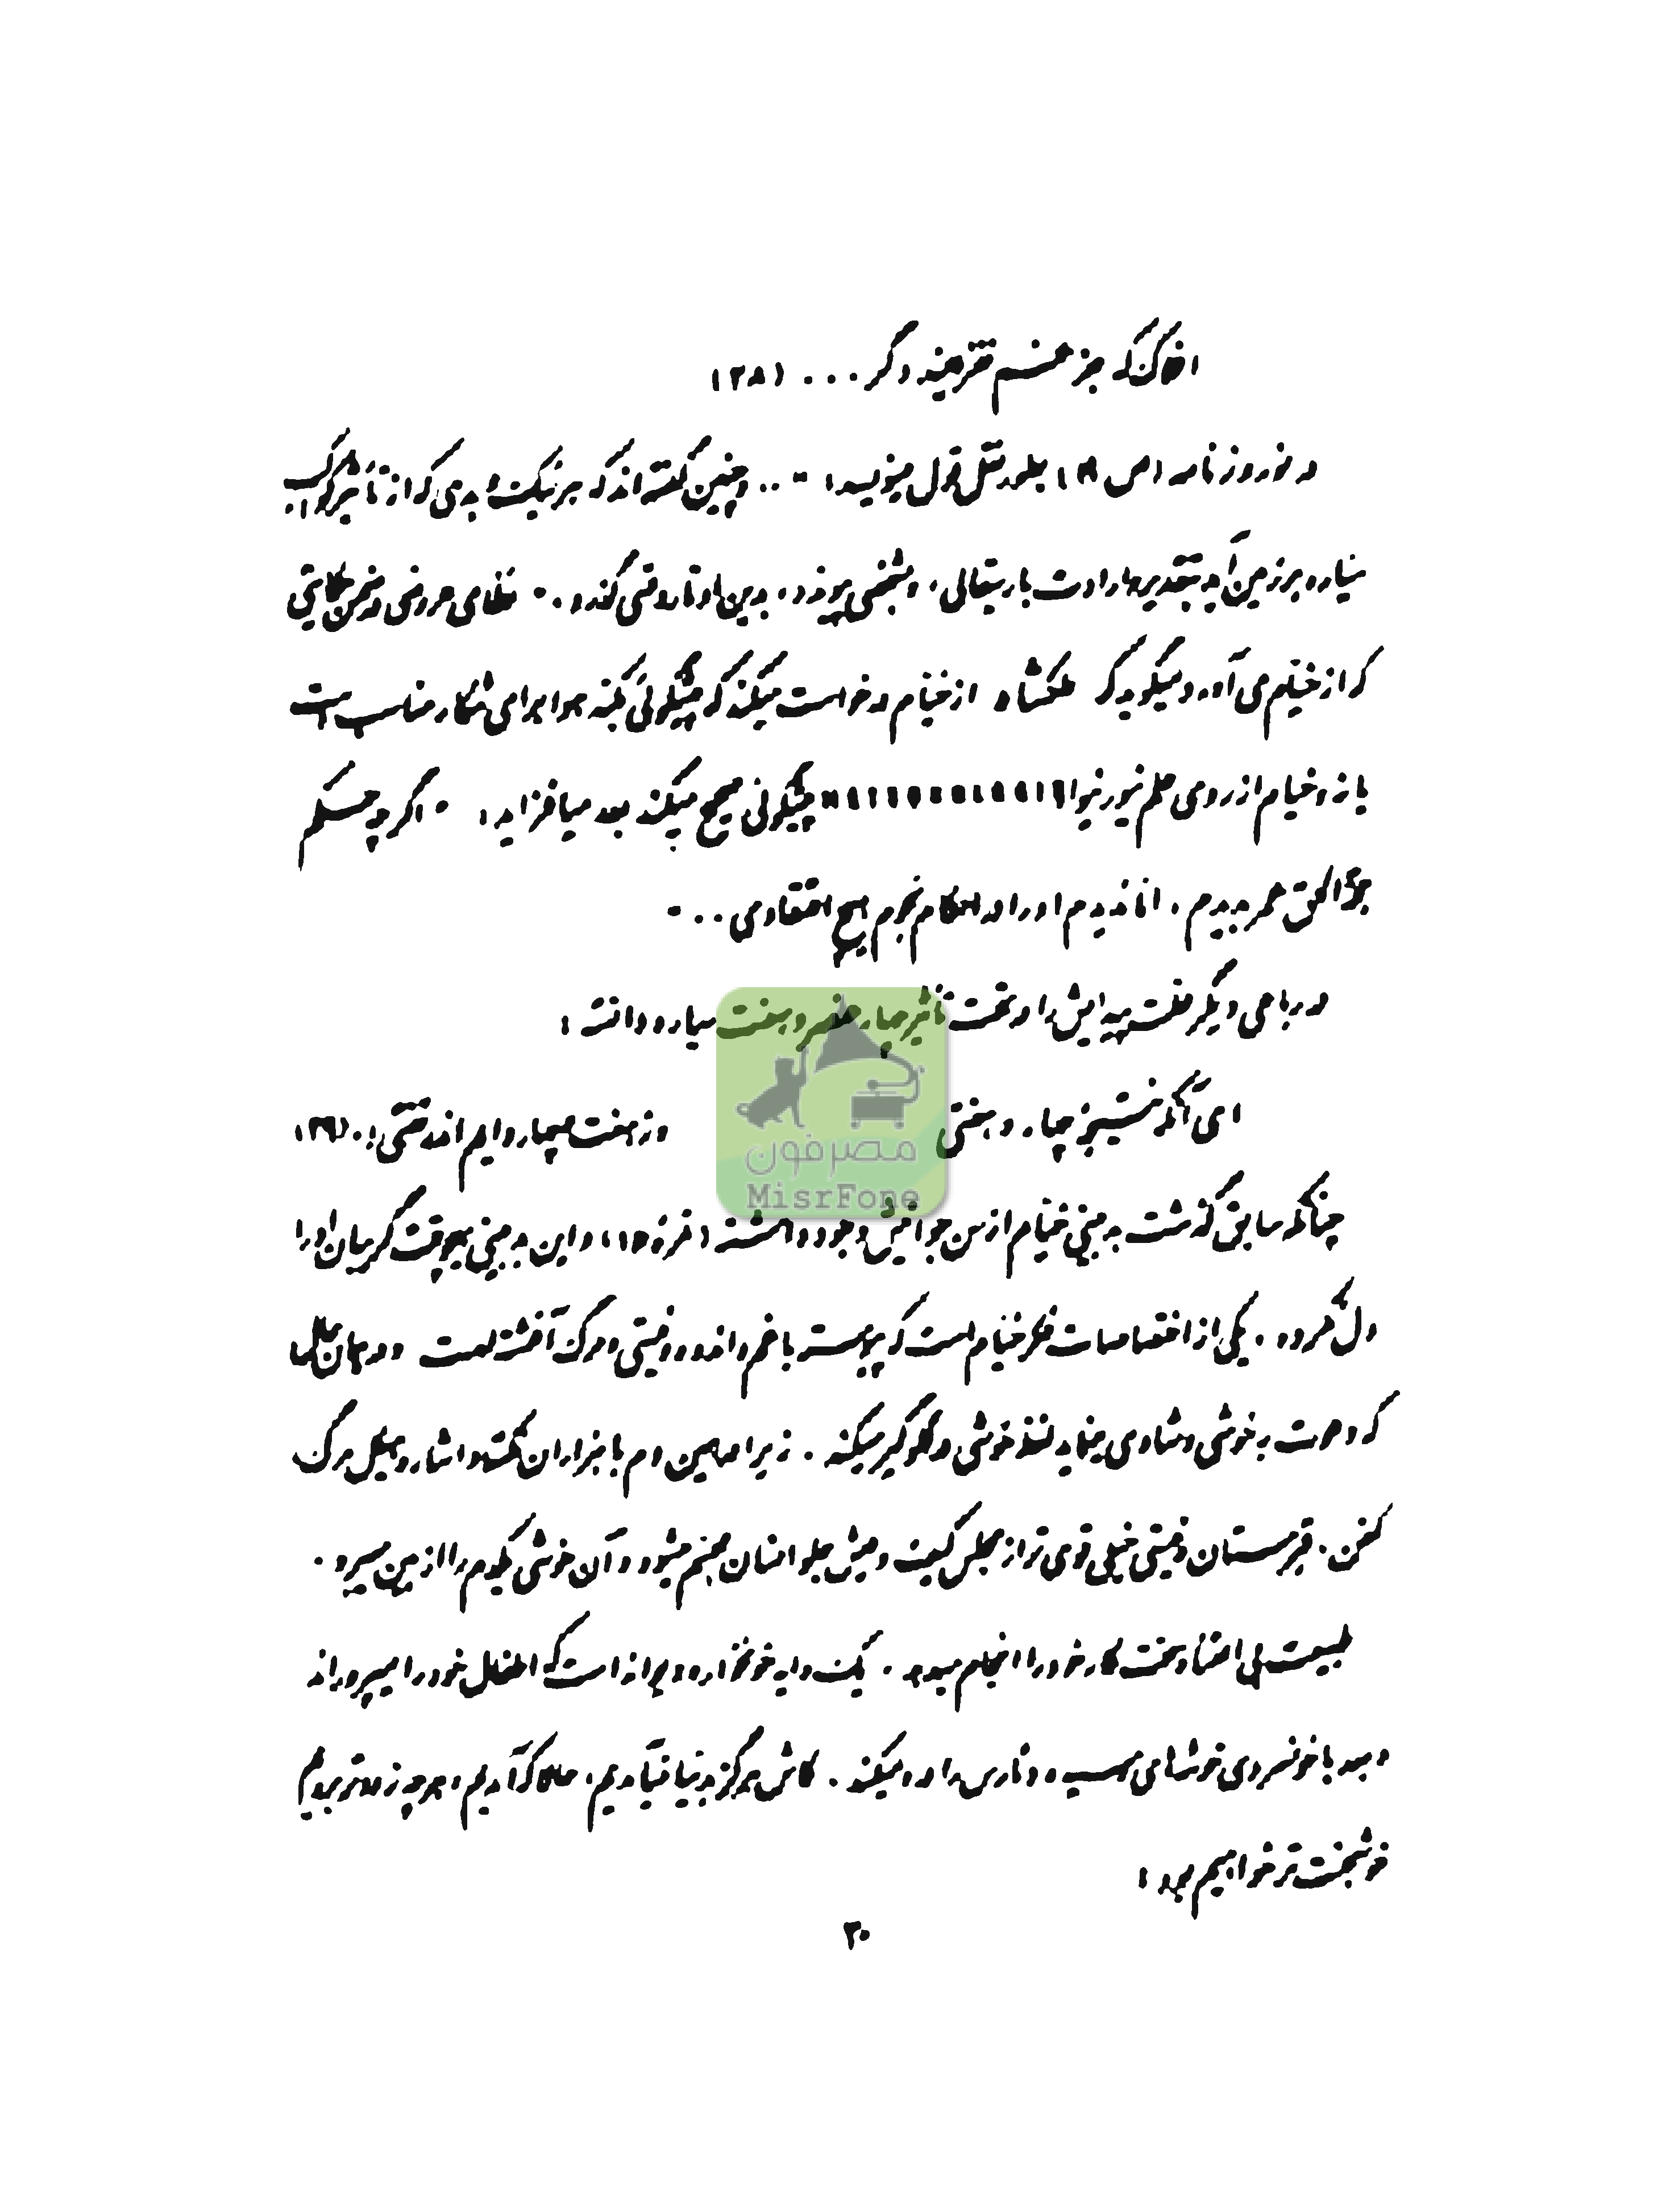 افلاک که جز غم نفزایند دگر... (۲۸)
در نوروزنامه (ص ۱۸) بطور نقل قول مینویسد: «.. و چنین گفته‌اند که هر نیک و بدی که از تأثیر کواکب
سیاره بر زمین آید بتقدیر و ارادت باریتعالی، و بشخصی پیوندد، بدین اوتار و قسی گذرد.» نظامی عروضی در ضمن حکایتی
که از خیام می‌آورد میگوید که ملکشاه از خیام درخواست میکند که پیشگوئی بکند هوا برای شکار مناسب است
یا نه و خیام از روی علم پیشگوئی صحیح میکند بعد میافزاید: «اگر چه حکم
حجةالحق عمر بدیدم، اما ندیدم او را در احکام نجوم هیچ اعتقادی..»
در رباعی دیگر علت پیدایش را در تحت تأثیر چهار عنصر و هفت سیاره دانسته:
ای آنکه نتیجهٔ چهار و هفتی وز هفت و چهار دایم اندر تفتی! (۲۹)
چنانکه سابق گذشت بدبینی خیام از سن جوانیش وجود داشته (نمره ) و این بدبینی هیچوقت گریبان او را
ول نکرده. یکی از اختصاصات فکر خیام است که پیوسته با غم و اندوه و نیستی و مرگ آغشته است و در همان حال
که دعوت به خوشی و شادی مینماید لفظ خوشی در گلو گیر میکند. زیرا در همین دم با هزاران نکته و اشاره هیکل مرگ،
کفن. قبرستان و نیستی خیلی قوی‌تر از مجلس کیف و عیش جلو انسان مجسم میشود و آن خوشی یکدم را از بین میبرد.
طبیعت بی‌اعتنا و سخت کار خود را انجام میدهد. یک دایه خونخوار و دیوانه است که اطفال خود را میپروراند
و بعد با خونسردی خوشه‌های رسیده و نارس را درو میکند. کاش هرگز بدنیا نیامدیم، حالا که آمدیم، هر چه زودتر برویم
خوشبخت‌تر خواهیم بود:
۳۰
مصرفون
MisrFone